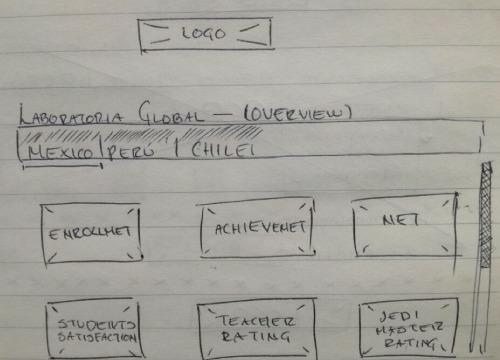 LOGO
LABORATORIA GLOBAL — (OVERVIEW)
MEXICO PERÚ CHILE
ENROLLMET ACHIEVEMET NET
STUDENTS TEACHER JEDI
SATISFACTION RATING MASTER
RATING